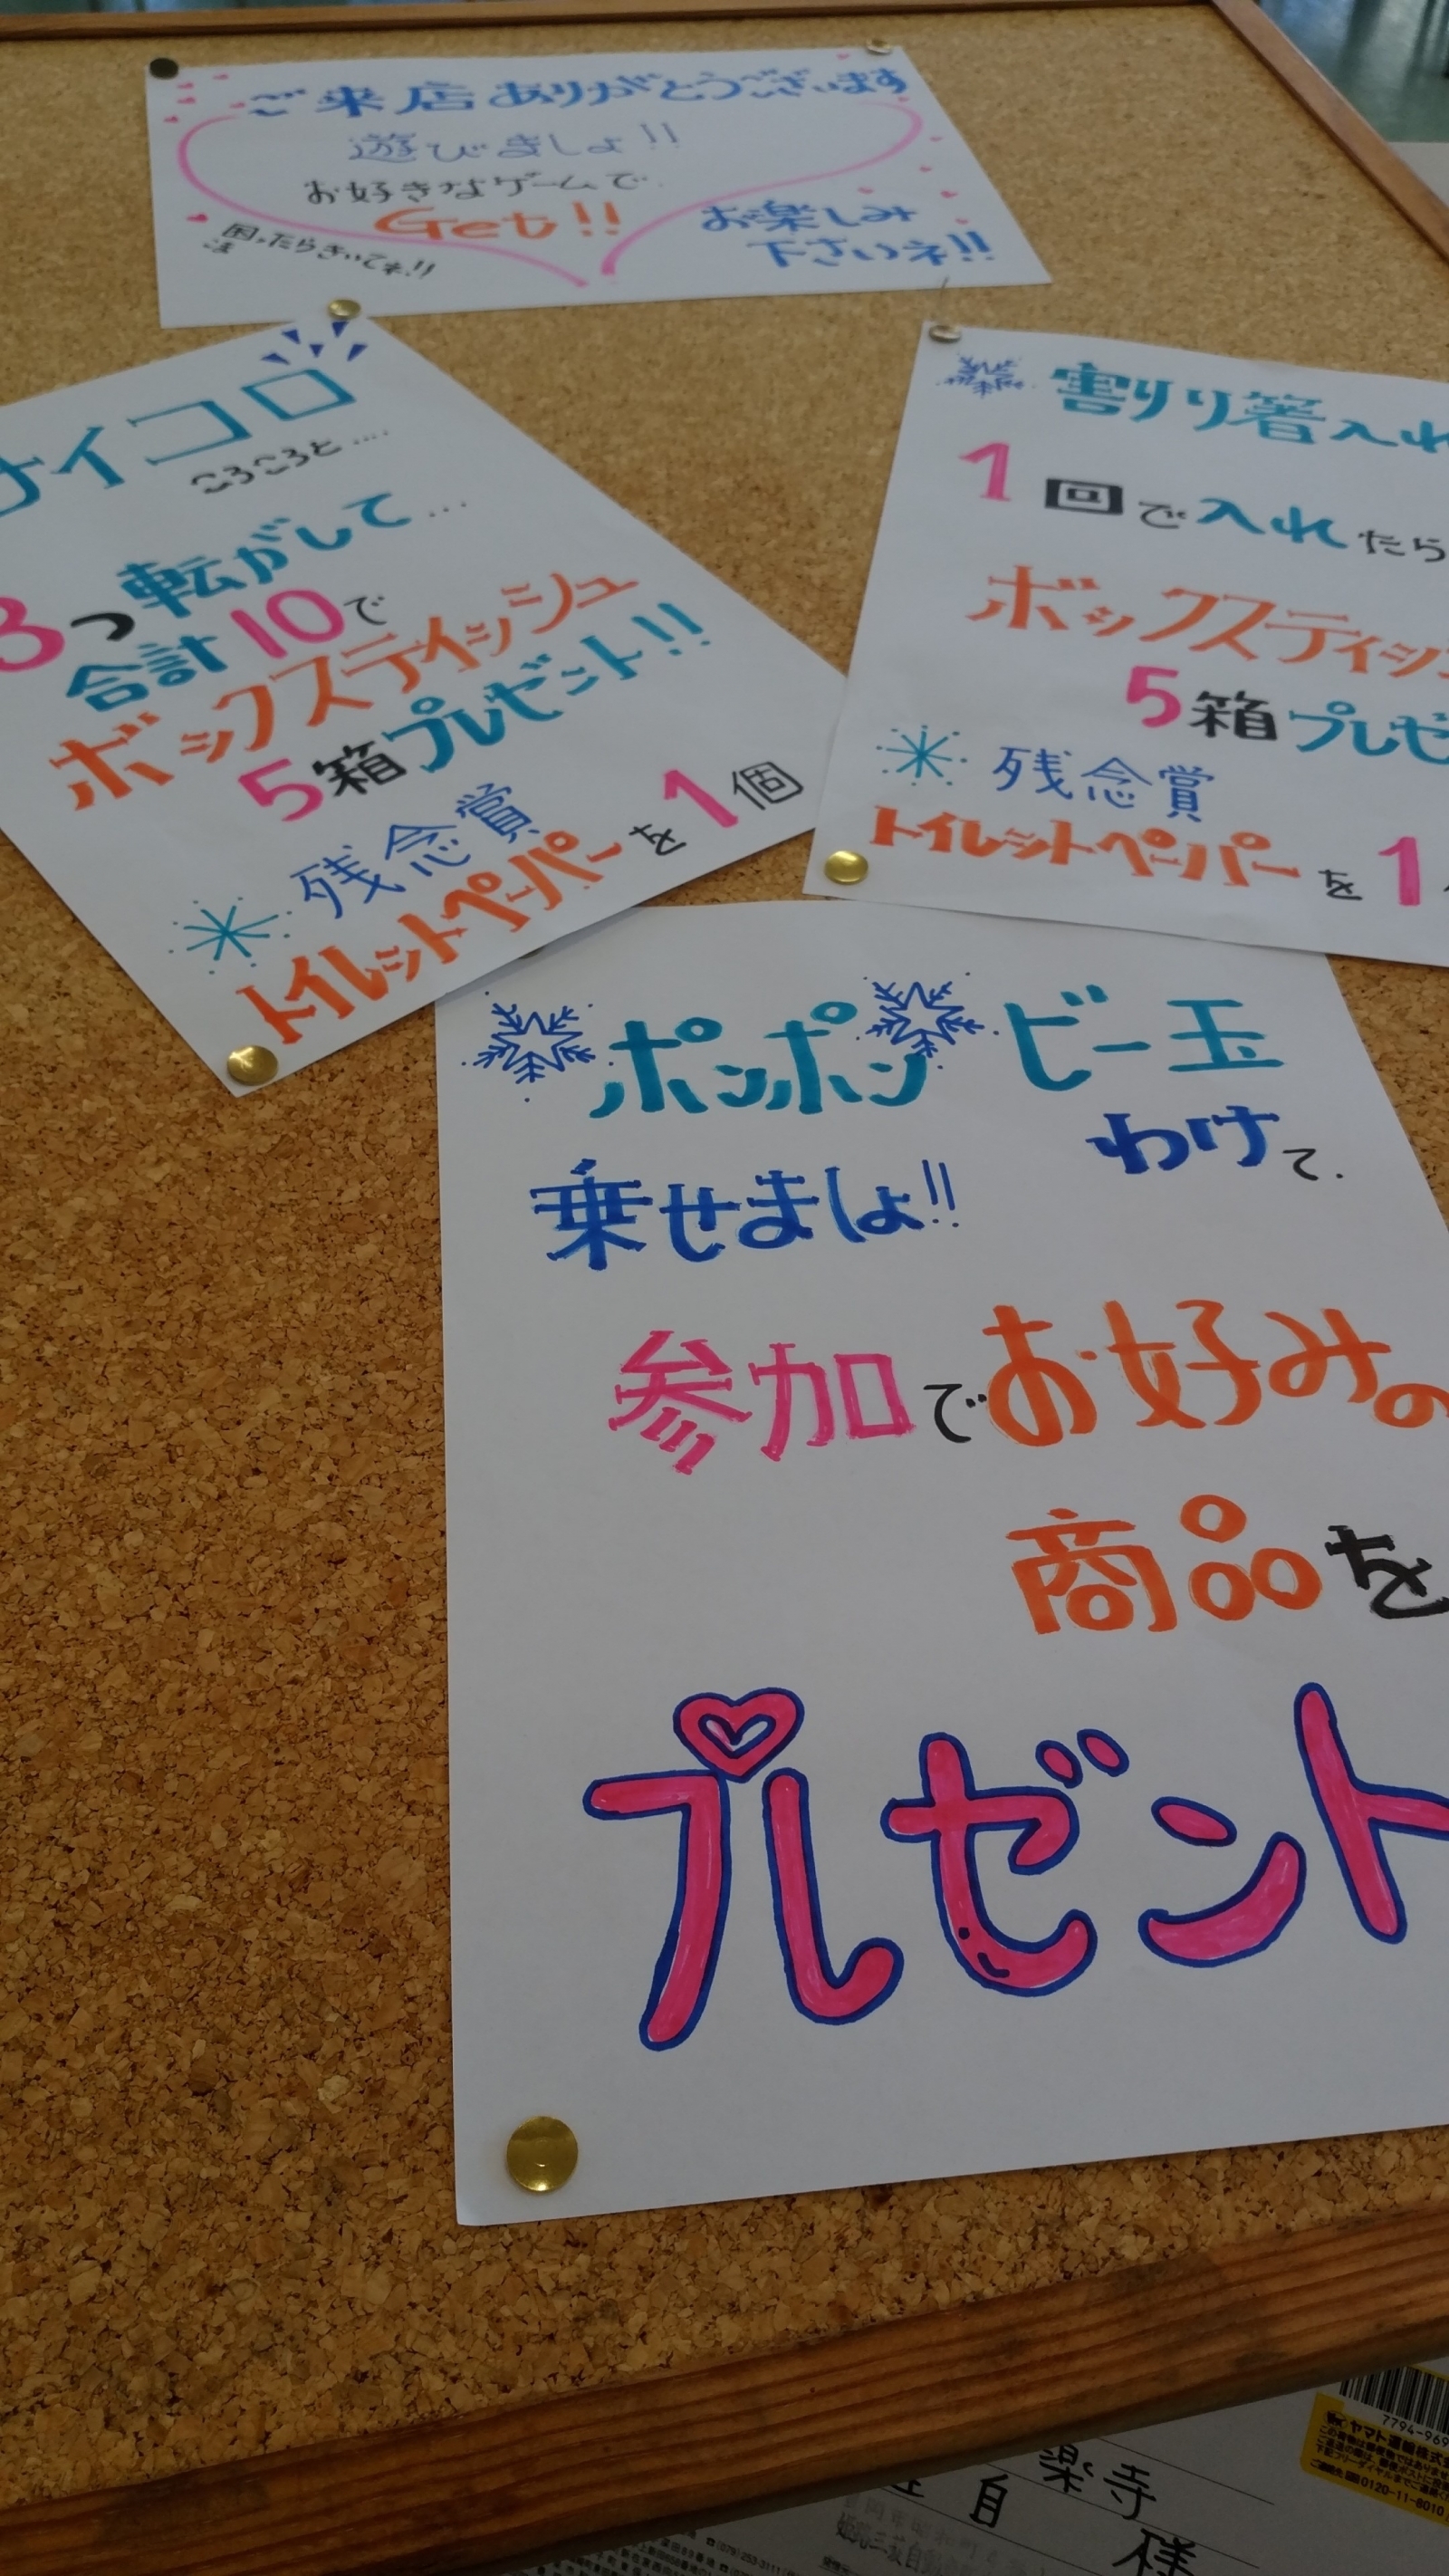 ご来店ありがとうございます
遊びましょ!!
お好きなゲームで
Get!!
お楽しみ
下さいネ!!
困ったらきいてネ!!
サイコロ
ころころと....
3つ転がして...
合計10で
ボックスティッシュ
5箱プレゼント!!
残念賞
トイレットペーパーを1個
割り箸入れ
1回で入れたら
ボックスティッシ
5箱プレゼ
残念賞
トイレットペーパーを1
ポンポン ビー玉
わけて.
乗せましょ!!
参加でお好みの
商品を
プレゼント
ヤマト運輸株式
0120-11-8010
7794-969
楽寺
自
様